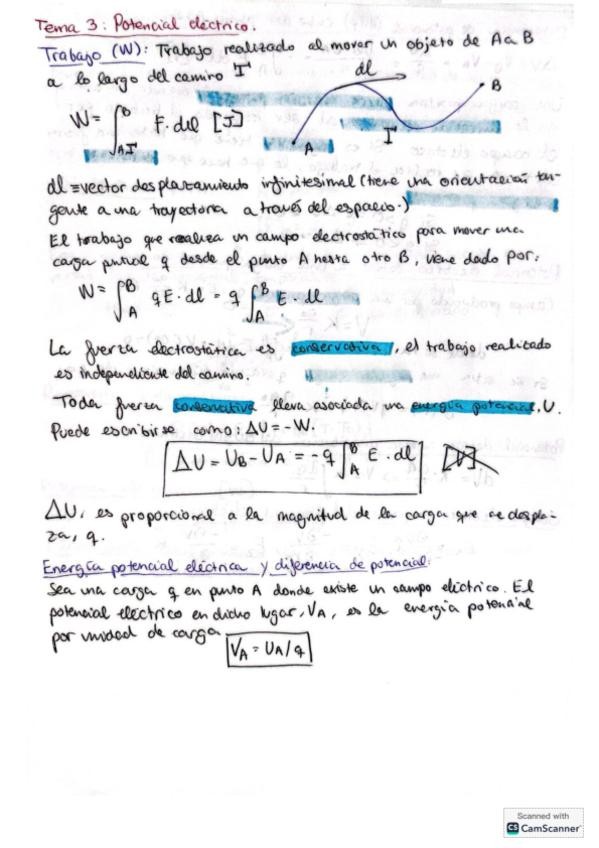 Tema 3: Potencial eléctrico.
Trabajo (W): Trabajo realizado al mover un objeto de A a B
a lo largo del camino Γ
dl
B
A
Γ
W = ∫_{AΓ}^{B} F · dl [J]
dl ≡ vector desplazamiento infinitesimal (tiene una orientación tan-
gente a una trayectoria a través del espacio.)
El trabajo que realiza un campo electrostático para mover una
carga puntual q desde el punto A hasta otro B, viene dado por:
W = ∫_A^B qE · dl = q ∫_A^B E · dl
La fuerza electrostática es conservativa, el trabajo realizado
es independiente del camino.
Toda fuerza conservativa lleva asociada una energía potencial, U.
Puede escribirse como: ΔU = -W.
ΔU = U_B - U_A = -q ∫_A^B E · dl
ΔU, es proporcional a la magnitud de la carga que se despla-
za, q.
Energía potencial eléctrica y diferencia de potencial:
Sea una carga q en punto A donde existe un campo eléctrico. El
potencial eléctrico en dicho lugar, V_A, es la energía potencial
por unidad de carga
V_A = U_A / q
Scanned with
CS CamScanner